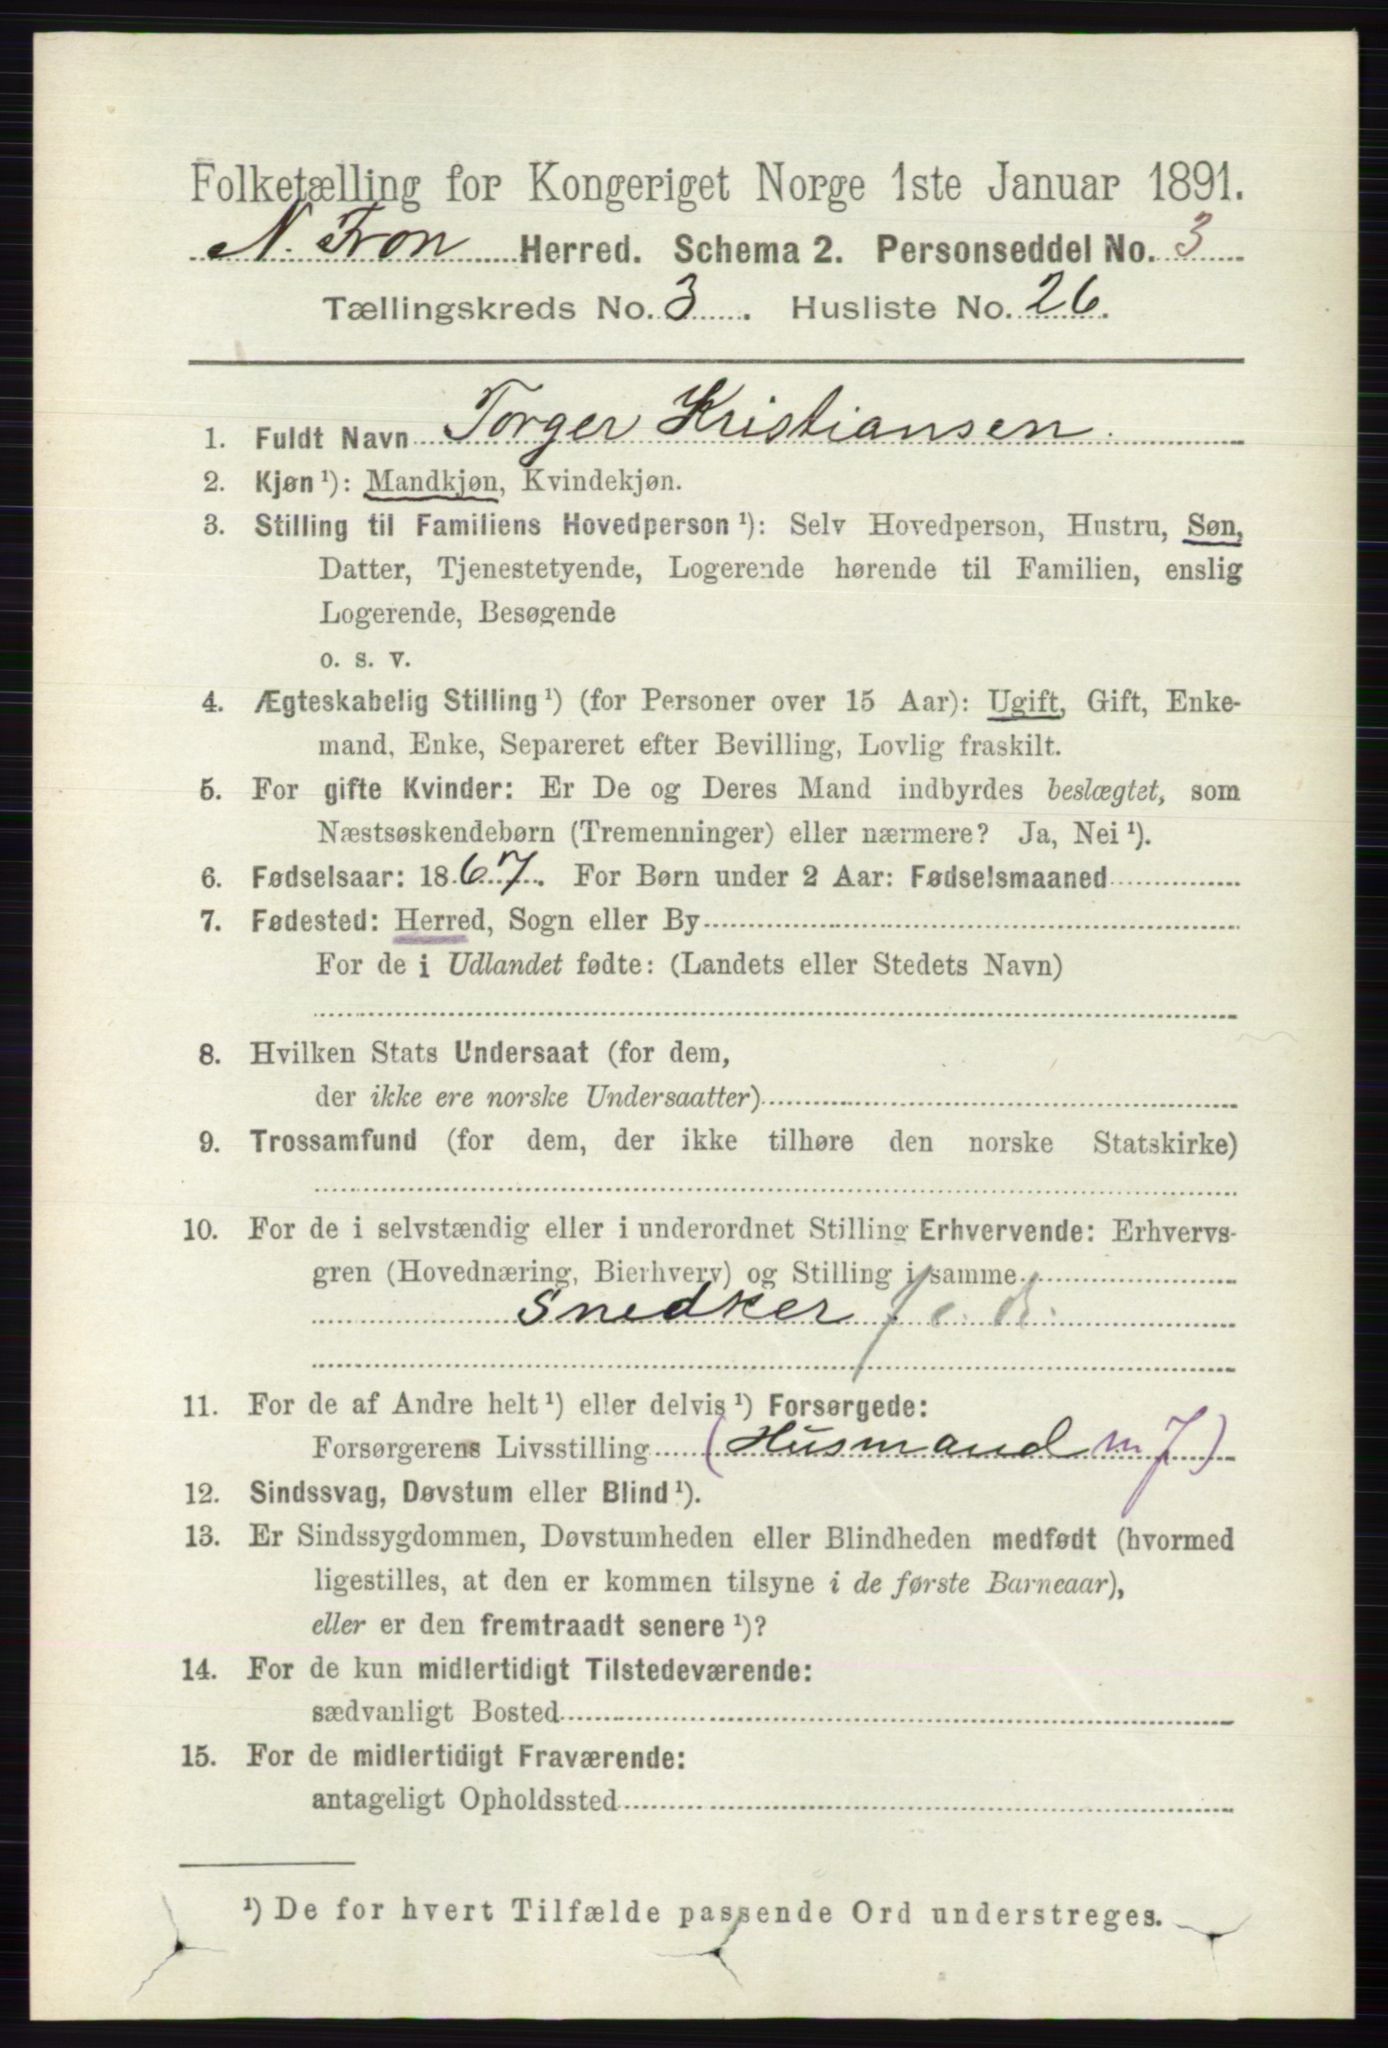 Folketælling for Kongeriget Norge 1ste Januar 1891.
N. Fron Herred. Schema 2. Personseddel No. 3
Tællingskreds No. 3. Husliste No. 26.
1. Fuldt Navn Torger Kristiansen.
2. Kjøn ¹): Mandkjøn, Kvindekjøn.
3. Stilling til Familiens Hovedperson ¹): Selv Hovedperson, Hustru, Søn,
Datter, Tjenestetyende, Logerende hørende til Familien, enslig
Logerende, Besøgende
o. s. v.
4. Ægteskabelig Stilling ¹) (for Personer over 15 Aar): Ugift, Gift, Enke-
mand, Enke, Separeret efter Bevilling, Lovlig fraskilt.
5. For gifte Kvinder: Er De og Deres Mand indbyrdes beslægtet, som
Næstsøskendebørn (Tremenninger) eller nærmere? Ja, Nei ¹).
6. Fødselsaar: 1867. For Børn under 2 Aar: Fødselsmaaned
7. Fødested: Herred, Sogn eller By
For de i Udlandet fødte: (Landets eller Stedets Navn)
8. Hvilken Stats Undersaat (for dem,
der ikke ere norske Undersaatter)
9. Trossamfund (for dem, der ikke tilhøre den norske Statskirke)
10. For de i selvstændig eller i underordnet Stilling Erhvervende: Erhvervs-
gren (Hovednæring, Bierhverv) og Stilling i samme
Snedker
11. For de af Andre helt ¹) eller delvis ¹) Forsørgede:
Forsørgerens Livsstilling (Husmand m J)
12. Sindssvag, Døvstum eller Blind ¹).
13. Er Sindssygdommen, Døvstumheden eller Blindheden medfødt (hvormed
ligestilles, at den er kommen tilsyne i de første Barneaar),
eller er den fremtraadt senere ¹)?
14. For de kun midlertidigt Tilstedeværende:
sædvanligt Bosted
15. For de midlertidigt Fraværende:
antageligt Opholdssted
¹) De for hvert Tilfælde passende Ord understreges.